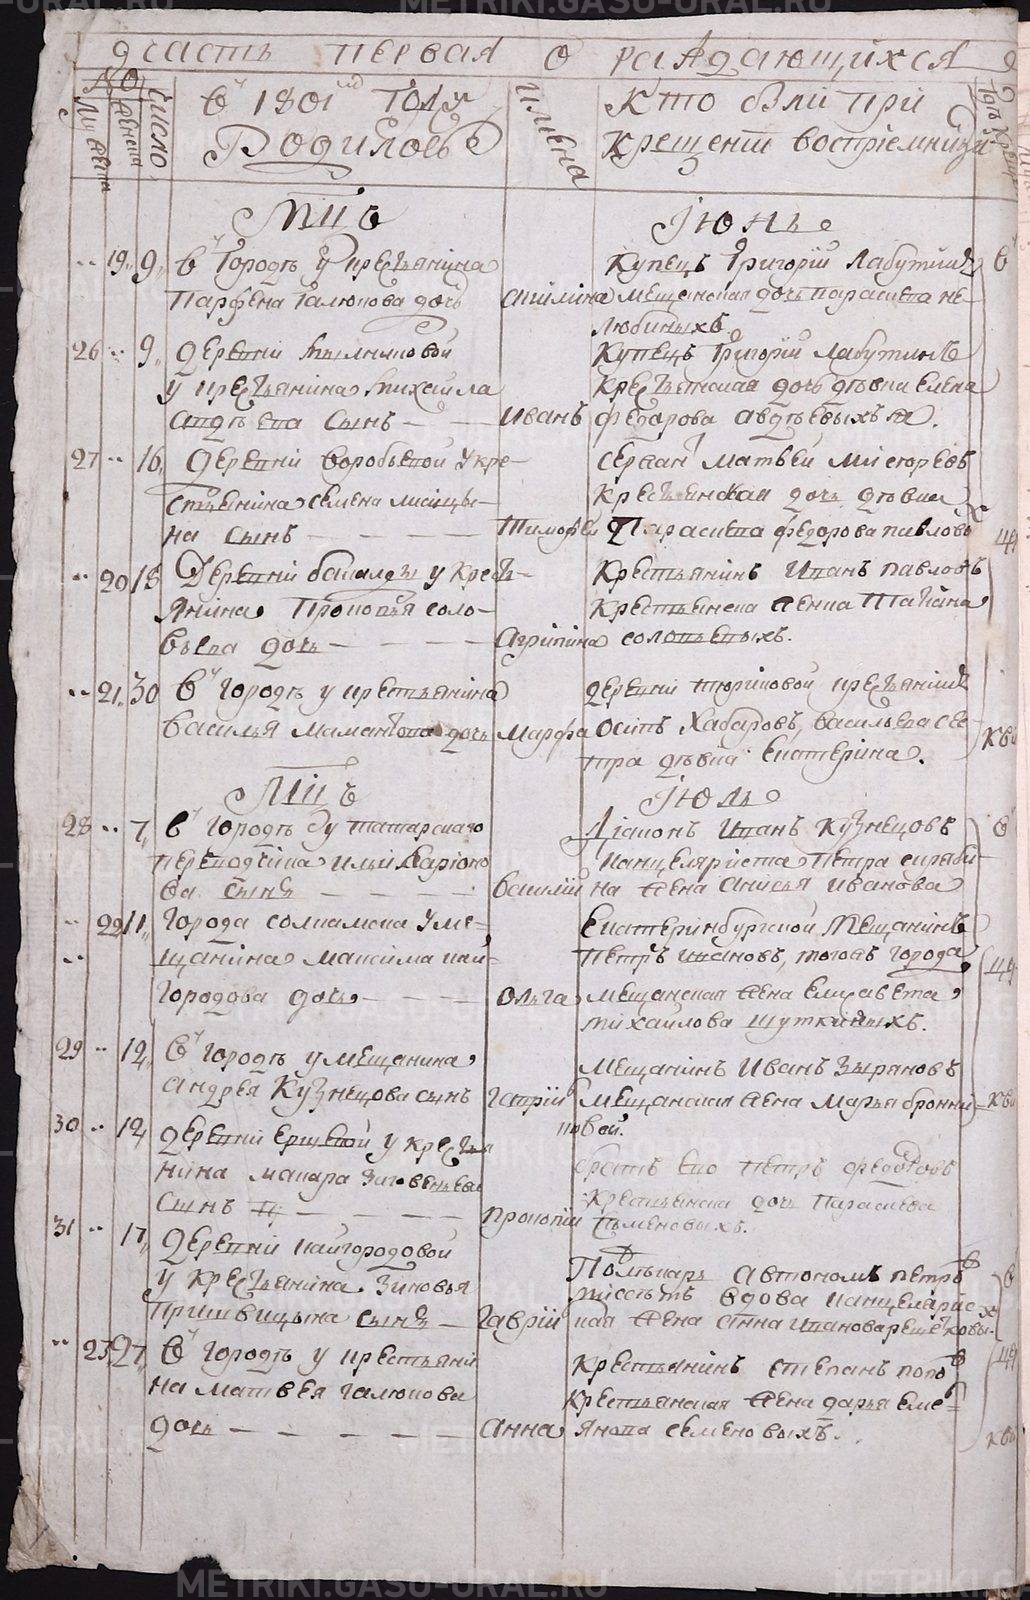 METRIKI.GASO-URAL.RU
часть первая о раждающихся
№
мужеска
женска
число
Въ 1801мъ Году
Родилось
имена
Кто были при
крещенïи воспрïемники
Мцъ Iюнь
19 9 въ городѣ у крестьянина
Парфена Галюкова дочь
Акилина
Купецъ Григорïй Лабутинъ
мещанская дочь параскева не-
любиныхъ
26 9 деревни
у крестьянина михаила
авдѣева сынъ
Иванъ
Купецъ Григорïй Лабутинъ
крестьянская дочь дѣвка елена
федорова авдѣевыхъ
27 16 деревни воробьевой у кре-
стьянина семена лисицы-
на сынъ
Тимофей
сержант Матвей
крестьянская дочь дѣвка
Параскева федорова павлово
20 18 Деревни бакалды у кресть-
янина Прокопья соло-
вьева дочь
Агрипина
крестьянинъ иванъ павловъ
крестьянска жена татïана
соловьевыхъ.
21 30 въ городѣ у крестьянина
василья мамантова дочь
марфа
деревни тюриковой крестьянинъ
Осипъ Хабаровъ, васильева сес-
тра дѣвка екатерина.
Мцъ Iюль
28 7 въ городѣ у татарскаго
переводчика ильи ларïоно
ва сынъ
василïй
Дïаконъ иванъ кузнецовъ
канцеляриста петра скряби-
на жена анисья иванова
22 11 города соликамска у ме-
щанина максима кай-
городова дочь
Ольга
екатеринбургской мещанинъ
петръ ивановъ, тогожъ города
мещанская жена елизавета
михайлова шуткиныхъ.
29 12 въ городѣ у мещанина
андрея кузнецова сынъ
Гаврïил
мещанинъ иванъ зыряновъ
мещанская жена марья бронни-
ковой.
30 12 деревни ершевой у крестья
нина макара зиновеньева
сынъ
прокопïи
братъ его петръ федотовъ
крестьянска дочь параскева
пьменовыхъ.
31 17 деревни кайгородовой
у крестьянина зиновья
пришвицына сынъ
Гаврïил
Пономарь автономъ петро
вдова канцелярис-
кая жена анна иванова решетковы
23 27 въ городѣ у крестьяни
на матвея галюкова
дочь
анна
крестьянинъ степанъ попо
крестьянская жена дарья еме-
янова семеновыхъ.
METRIKI.GASO-URAL.RU